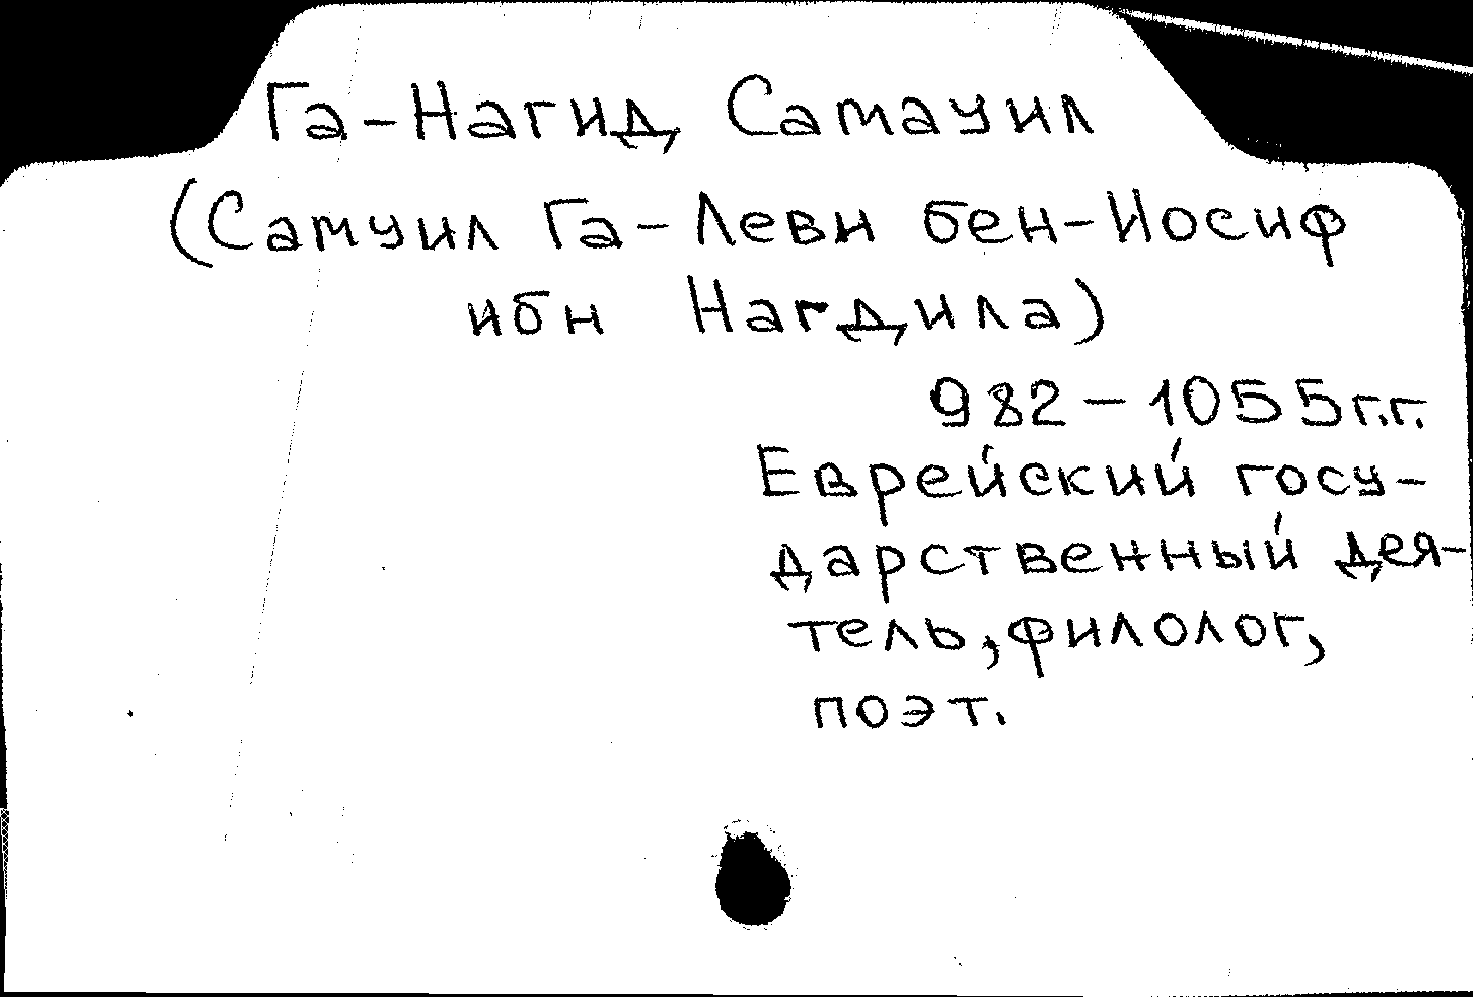 Га-Нагид Самауил
(Самуил Га-Леви бен-Иосиф
ибн Нагдила)
982-1055г.г.
Еврейский госу-
дарственный дея-
тель, филолог,
поэт.